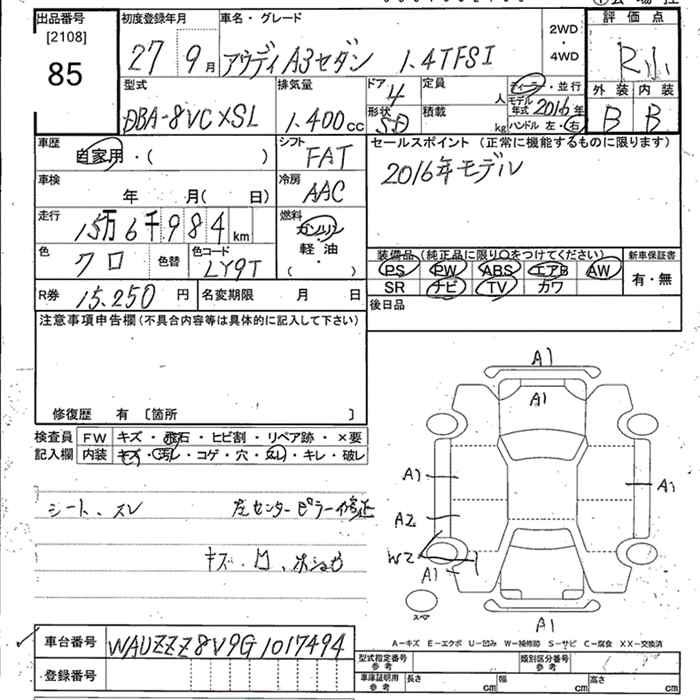 出品番号 初度登録年月 車名・グレード 2WD・4WD 評価点
[2108] 85 27 9月 アウディA3セダン 1.4TFSI R小
型式 排気量 ドア 4 定員 人 ディーラー・並行 外装 内装
DBA-8VCXSL 1.400cc 形状 SD 積載 kg モデル年式 2016年 ハンドル 左・右 B B
車歴 自家用・( ) シフト FAT セールスポイント (正常に機能するものに限ります)
車検 年 月( 日) 冷房 AAC 2016年モデル
走行 15万6千984km 燃料 ガソリン・軽油・( )
色 クロ 色替 色コード LY9T 装備品 (純正品に限り○をつけてください) 新車保証書
PS PW ABS エアB AW 有・無
SR ナビ TV カワ
R券 15.250円 名変期限 月 日 後日品
注意事項申告欄(不具合内容等は具体的に記入して下さい)
修復歴 有 〔箇所 〕
検査員 FW キズ・飛石・ヒビ割・リペア跡・×要
記入欄 内装 キズ・汚れ・コゲ・穴・スレ・キレ・破レ
シート、スレ 左センターピラー修正
キズ・凹、ホシュウ
A1
A1
A1 A1
A2
W2
A1
スペア
A1
A-キズ E-エクボ U-凹み W-補修跡 S-サビ C-腐食 XX-交換済
車台番号 WAUZZZ8V9G1017494 型式指定番号 参考 類別区分番号 参考
登録番号 車庫証明用 参考 長さ cm 幅 cm 高さ cm